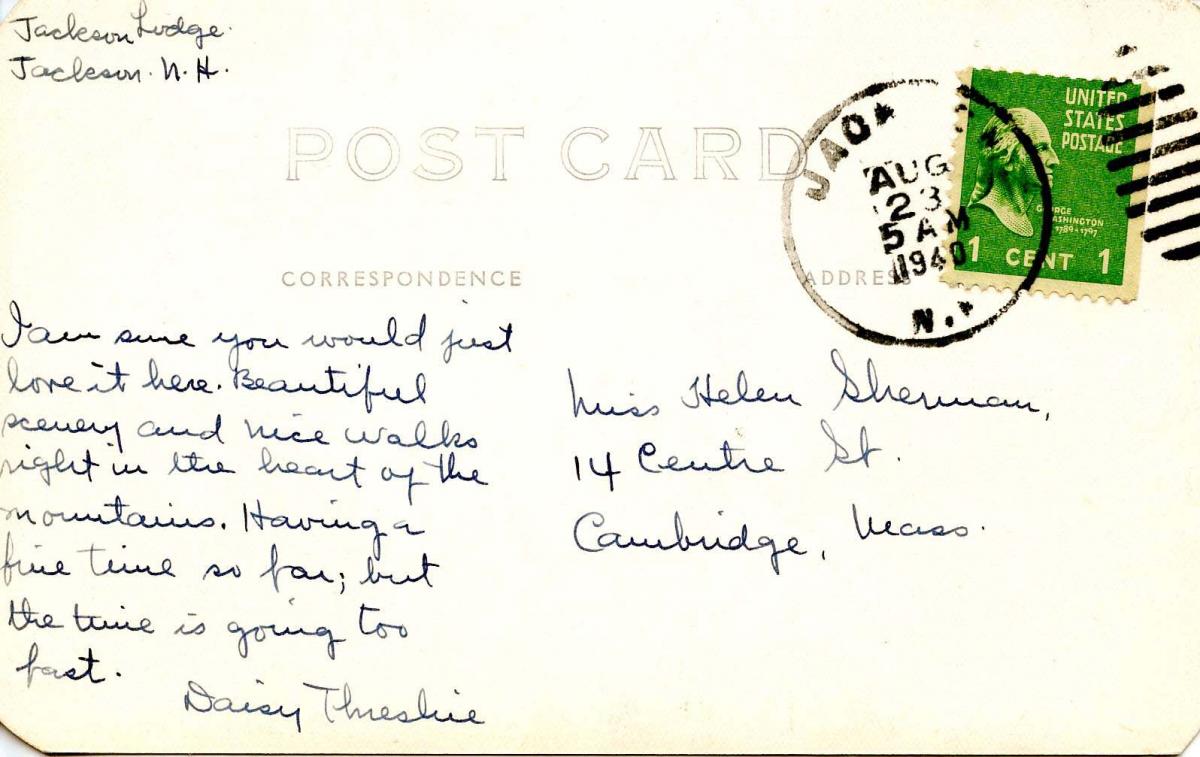 Jackson Lodge.
Jackson. N. H.
POST CARD
UNITED
STATES
POSTAGE
AUG
23
5 AM
1940
N.
GEORGE
WASHINGTON
1789-1797
1 CENT 1
CORRESPONDENCE
ADDRESS
I am sure you would just
love it here. Beautiful
scenery and nice walks
right in the heart of the
mountains. Having a
fine time so far; but
the time is going too
fast.
Daisy
Miss Helen Sherman,
14 Centre St.
Cambridge, Mass.